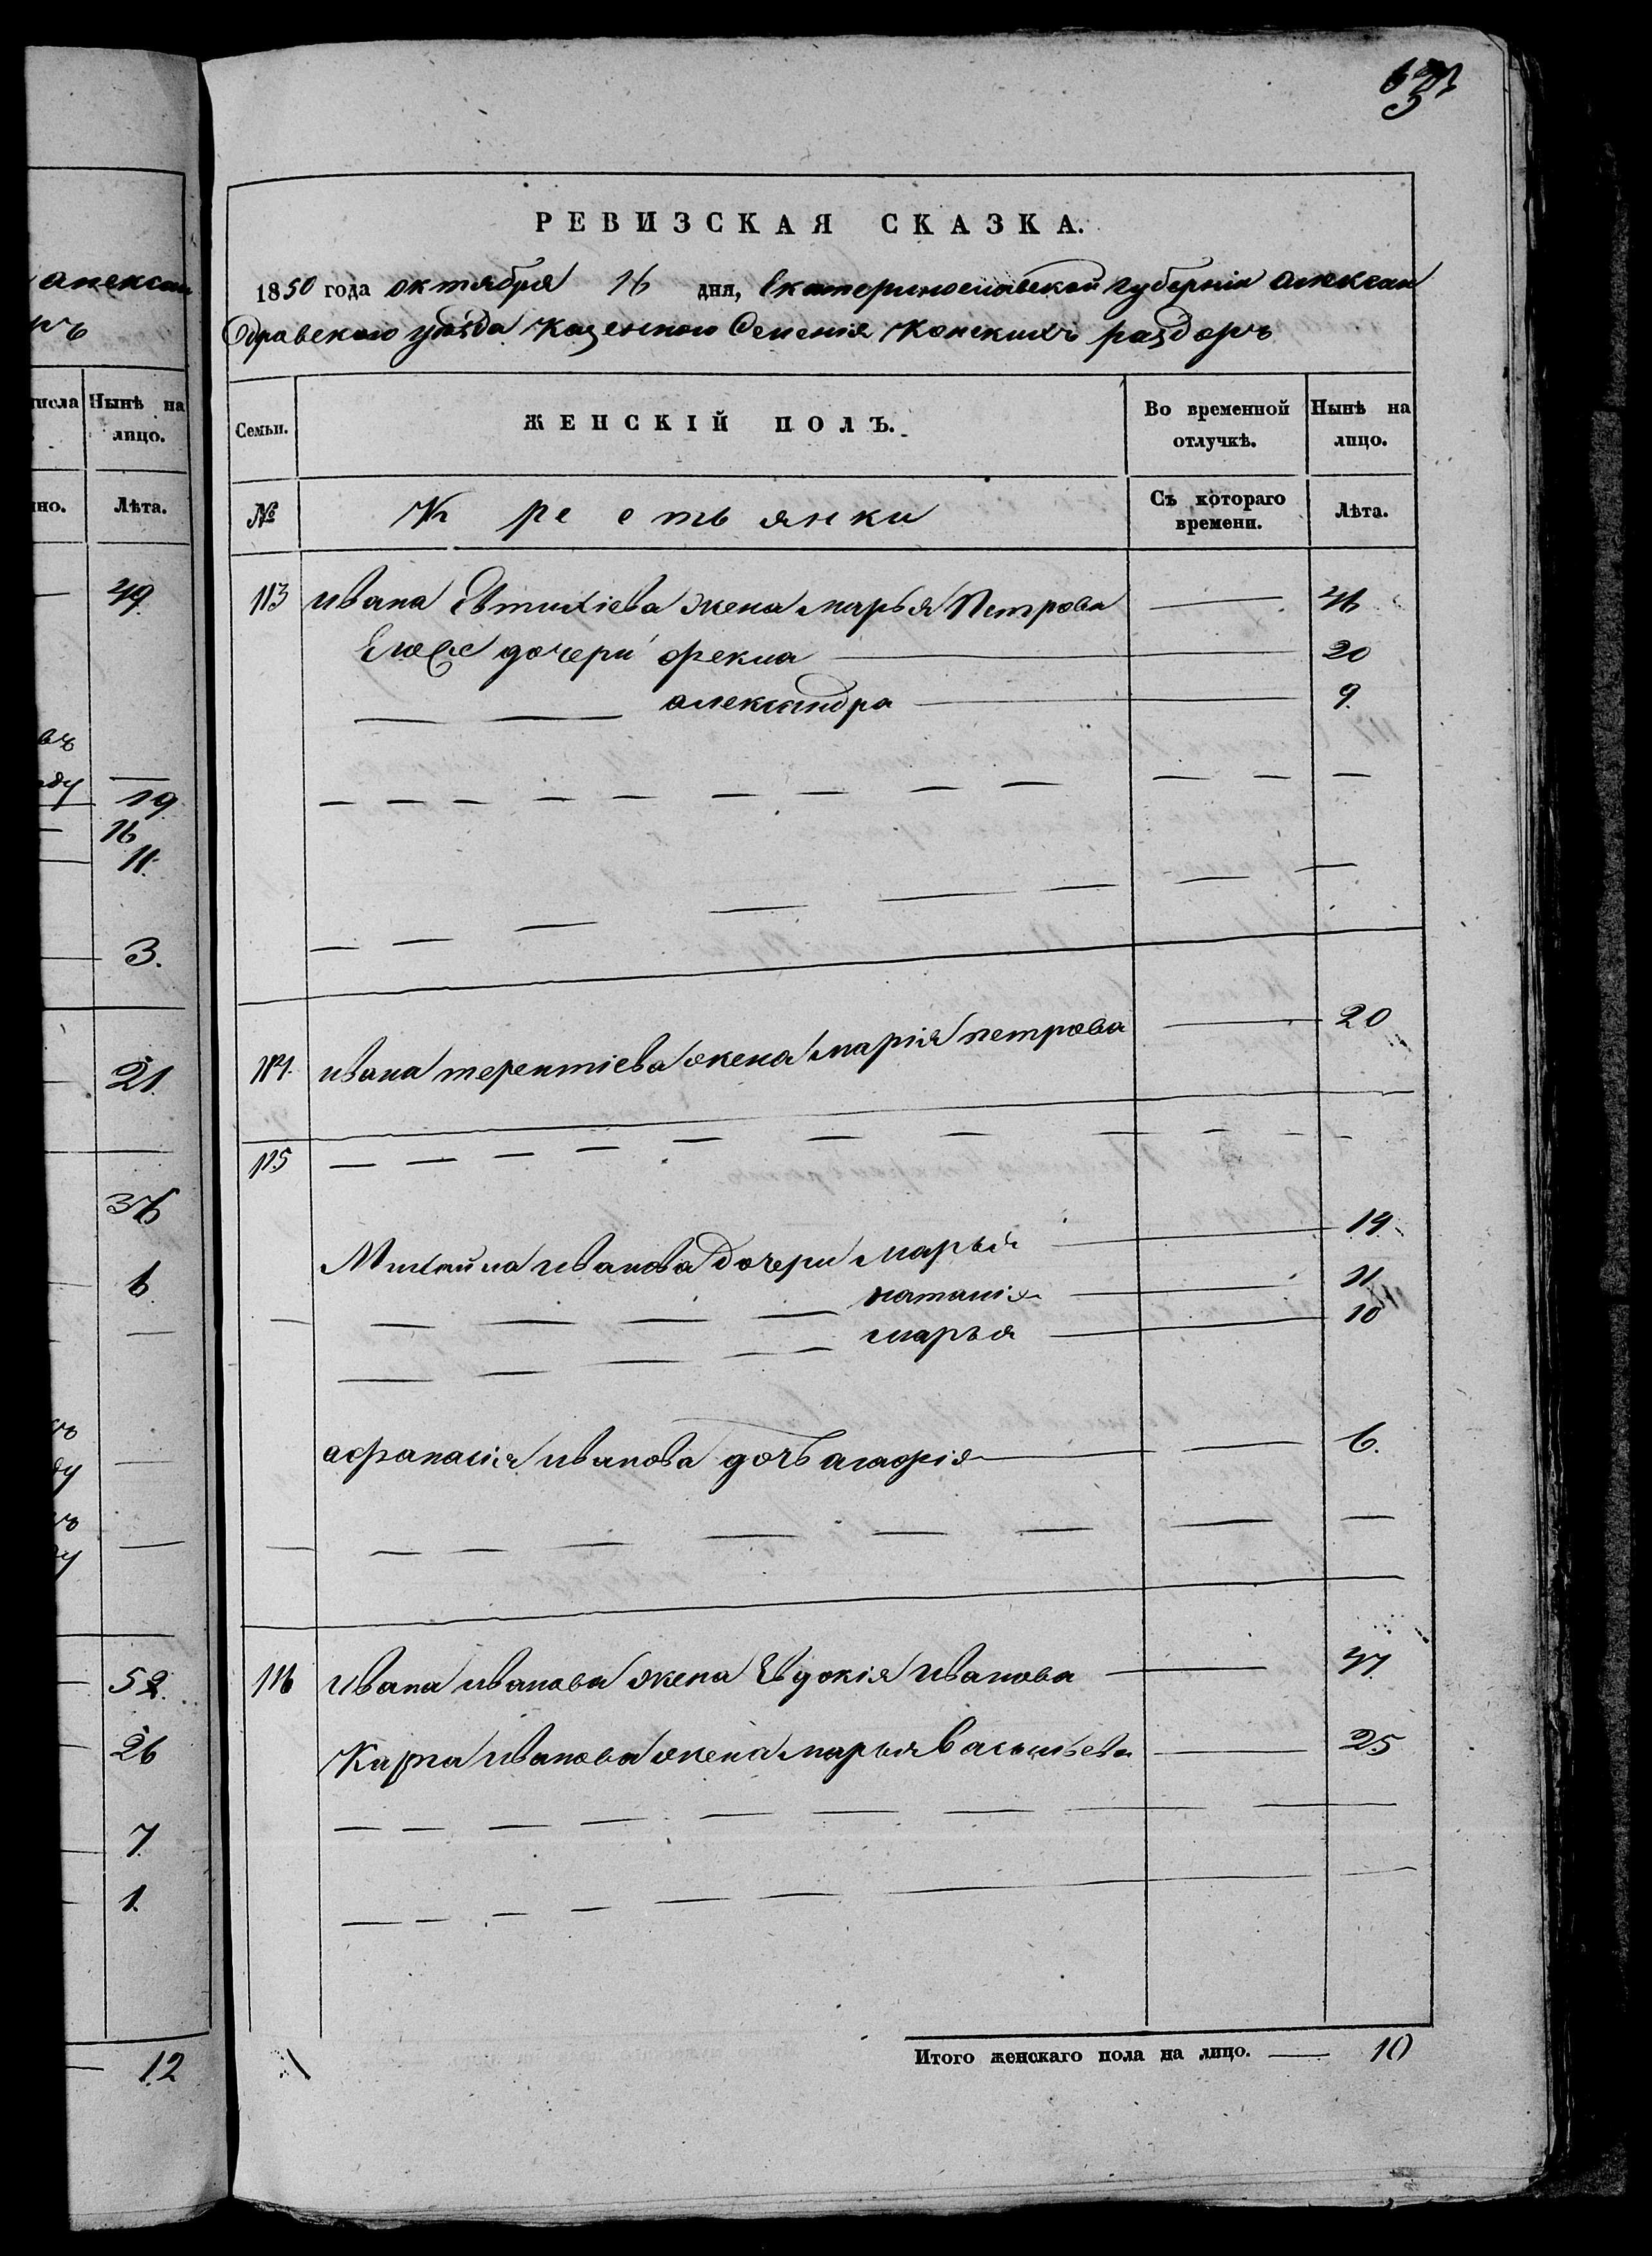 анексан
ръ
числа Нынѣ на
лицо.
но. Лѣта.
49.
въ
ду
19.
16
11.
3.
21.
36
6
ду
52.
26
7.
1.
12
РЕВИЗСКАЯ СКАЗКА.
1850 года октября 16 дня, Екатеринославской губерніи алексан
дравскаго уѣзда казенного селенія конскихъ раздоръ
Семьи. ЖЕНСКІЙ ПОЛЪ. Во временной отлучкѣ. Нынѣ на лицо.
№ Крестьянки Съ котораго времени. Лѣта.
113 ивана Евтихіева жена марья Петрова 46
Его же дочери фекла 20
александра 9.
114. ивана терентіева жена марія петрова 20
115
Михайла иванова дочери марья 14.
наталія 11
марья 10
афанасія иванова дочь агафія 6.
116 ивана иванова жена Евдокія иванова 47.
Карпа иванова жена марья васильева 25
Итого женскаго пола на лицо. 10